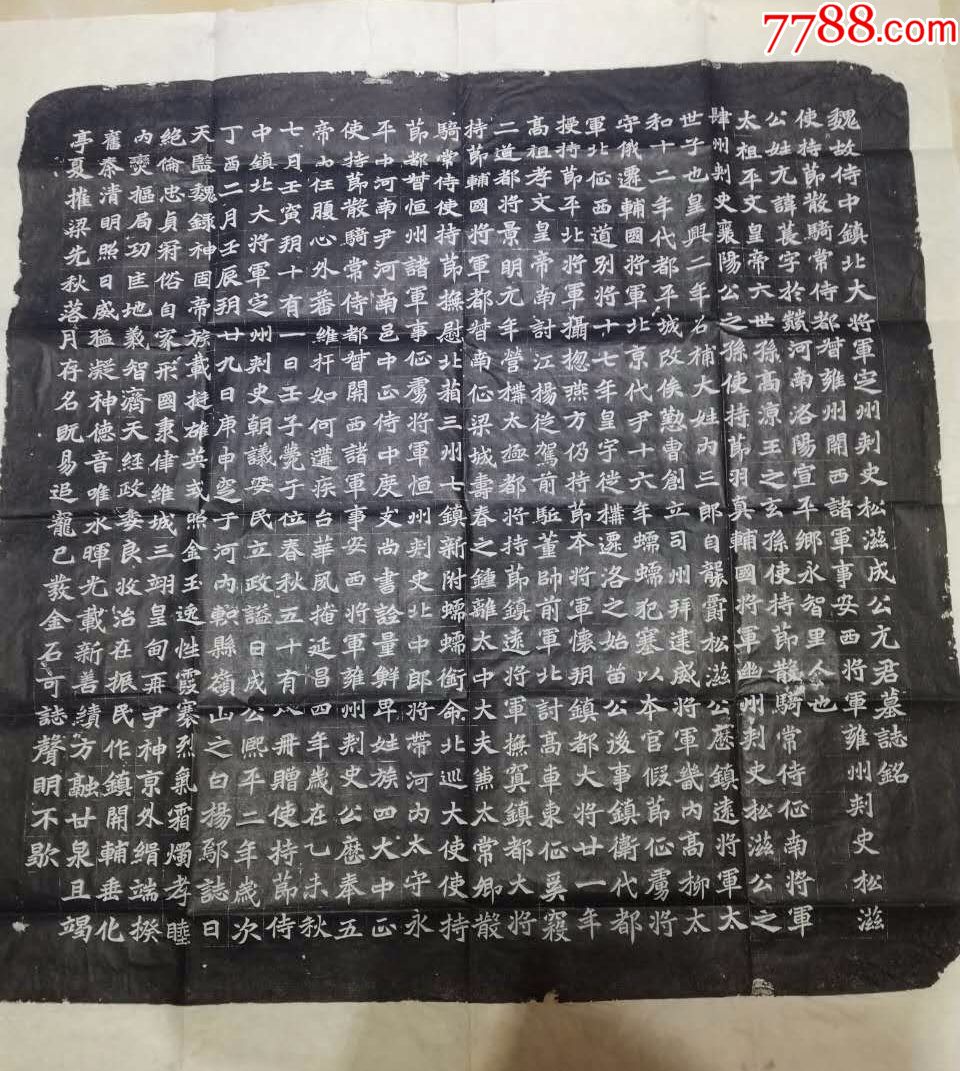 7788.com
魏故侍中鎮北大將軍定州刺史松滋成公元君墓誌銘
使持節散騎常侍都督雍州開西諸軍事安西將軍雍州刺史松滋
公姓元諱萇字於巔河南洛陽宣平鄉永智里人也
太祖平文皇帝六世孫高涼王之玄孫使持節散騎常侍征南將軍
肆州刺史襄陽公之孫使持節羽真輔國將軍幽州刺史松滋公之
世子也皇興二年名補大姓內三郎自襲爵松滋公歷鎮遠將軍太
和十二年代都平城改俟懃曹創立司州拜建威將軍畿內高柳太
守俄遷輔國將軍北京代尹十六年蠕蠕犯塞以本官假節征虜將
軍北征西道別將十七年皇宇徙構遷洛之始留公後事鎮衛代都
授持節平北將軍攝揔燕方仍持節本將軍懷朔鎮都大將廿一年
高祖孝文皇帝南討江楊從駕前駈董帥前軍北討高車東征奚寇
二道都將景明元年營構太極都將持節鎮遠將軍撫冥鎮都大將
持節輔國將軍都督南征梁城壽春之鍾離太中大夫兼太常卿散
騎常侍使持節撫慰北箱三州七鎮新附蠕蠕銜命北巡大使使持
節都督恒州諸軍事征虜將軍恒州刺史北中郎將帶河內太守永
平中河南尹河南邑中正侍中度支尚書詮量鮮卑姓族四大中正
使持節散騎常侍都督開西諸軍事安西將軍雍州刺史公歷奉五
帝內任腹心外蕃維扞如何遘疾台華風掩延昌四年歲在乙未秋
七月壬寅朔十有一日壬子薨于位春秋五十有八冊贈使持節侍
中鎮北大將軍定州刺史朝議安民立政謚曰成公熙平二年歲次
丁酉二月壬辰朔廿九日庚申窆于河內軹縣嶺山之白楊鄔誌曰
天監魏錄神固帝族載挺雄英或照金玉逸性霞騫烈氣霜燭孝睦
絕倫忠貞冠俗自家形國秉律維城三翊皇甸再尹神京外緝端揆
內爕樞局功匡地義智濟天經政委良牧治在振民作鎮開輔垂化
舊秦清明照日威猛凝神德音唯永暉光載新善績方融甘泉且竭
亭夏摧梁先秋落月存名既易追寵已裁金石可誌聲明不歇